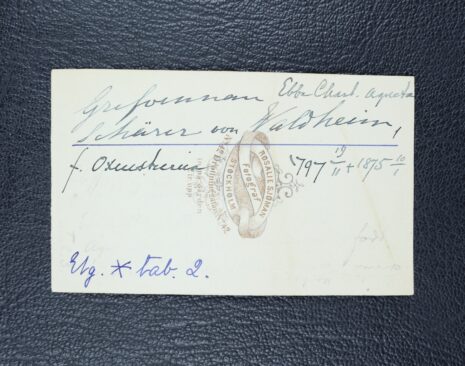 Grefvinnan Ebba Charl. Agneta
Schärer von Waldheim,
f. Oxenstierna 1797 19/11 + 1875 10/1
ROSALIE SJÖMAN
Fotograf
STOCKHOLM
42
Etg. * tab. 2.
född